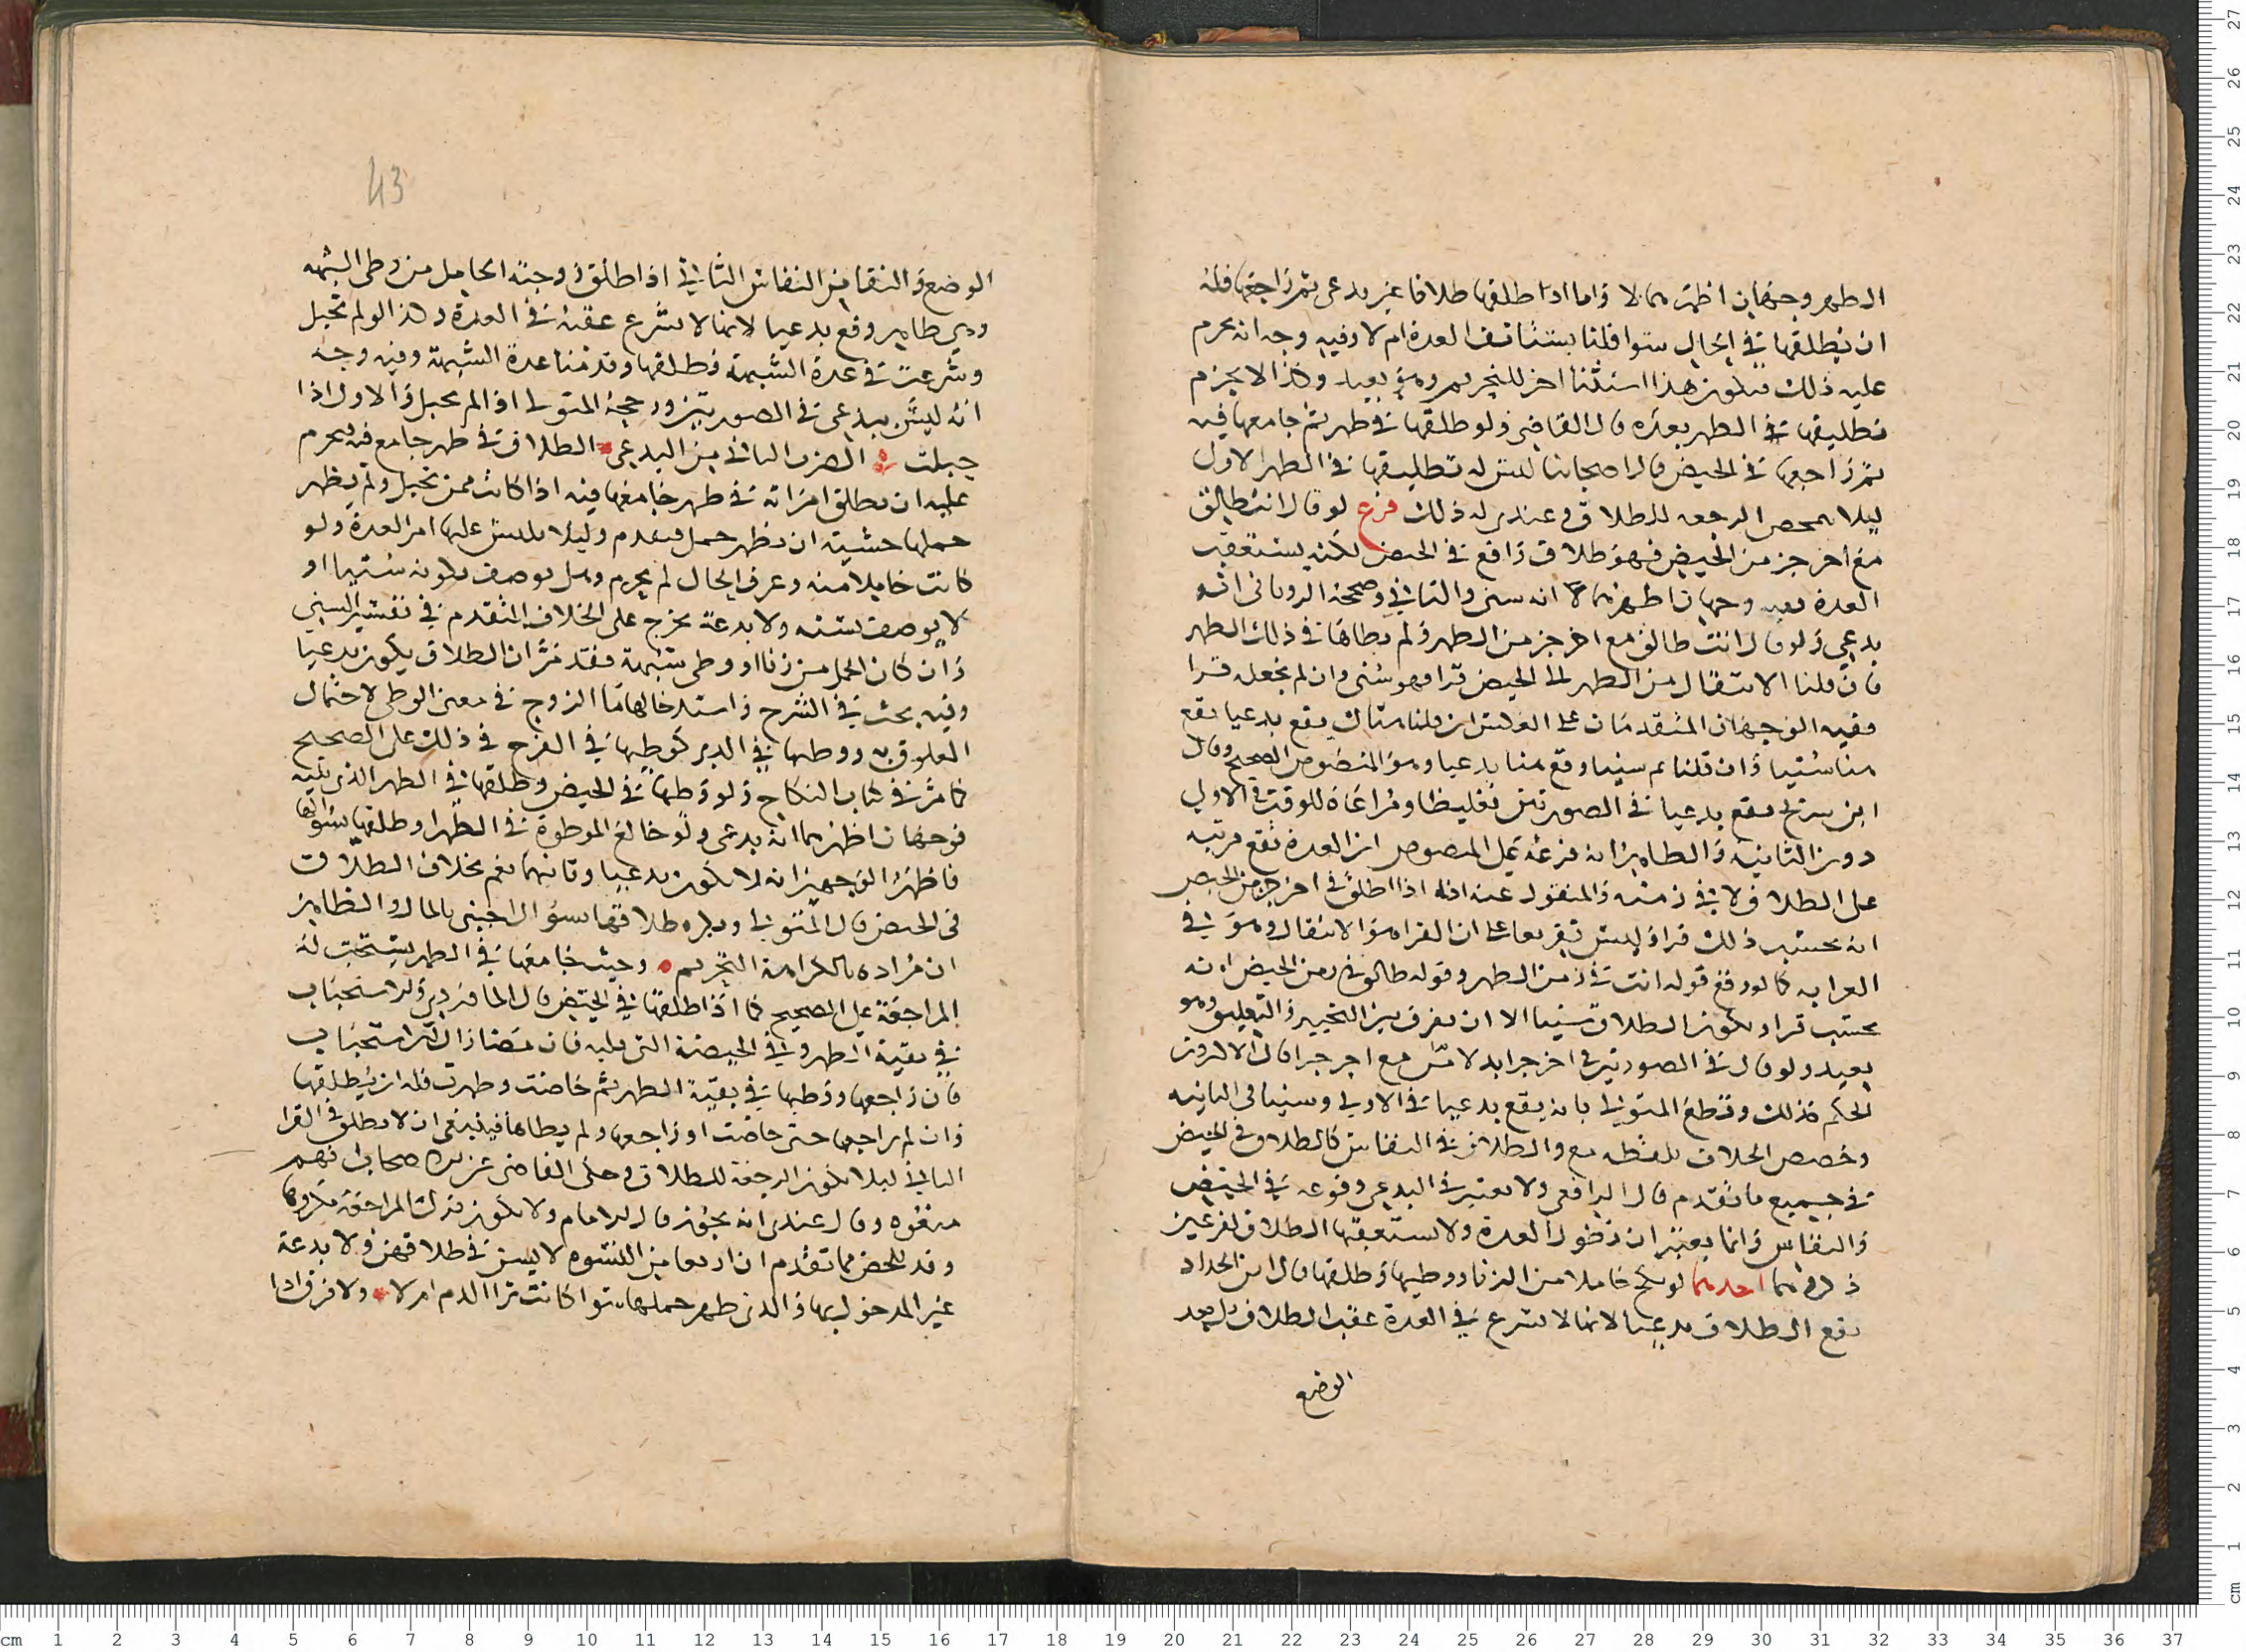 الطهر وجهان اظهرهما لا واما اذا طلقها طلاقا غير بدعي ثم راجعها فله
ان يطلقها في الحال سوا قلنا تستانف العدة ام لا وفيه وجه انه يحرم
عليه ذلك فيكون هذا استثنا اخر للتحريم وهو بعيد وكذا لا يحرم
تطليقها في الطهر بعده قال القاضي ولو طلقها في طهر ثم جامعها فيه
ثم راجعها في الحيض قال اصحابنا ليس له تطليقها في الطهر الاول
ليلا تمحض الرجعه للطلاق وعندي له ذلك فرع لو قال انت طالق
مع اخر جز من الحيض فهو طلاق واقع في الحيض لكنه يستعقب
العدة ففيه وجهان اظهرهما انه سني والثاني وصححه الروياني انه
بدعي ولو قال انت طالق مع اخر جز من الطهر ولم يطاها في ذلك الطهر
فان قلنا الانتقال من الطهر الى الحيض قرا فهو سني وان لم نجعله قرا
ففيه الوجهان المتقدمان على العكس ان قلنا هناك يقع بدعيا يقع
هنا سنيا وان قلنا ثم سنيا وقع هنا بدعيا وهو المنصوص الصحيح وقال
ابن سريج يقع بدعيا في الصورتين تغليظا ومراعاة للوقت في الاولى
دون الثانية والظاهر انه فرعه على المنصوص ان العدة تقع مرتبه
على الطلاق لا في زمنه والمنقول عنه انه اذا طلق في اخر جز من الحيض
انه يحتسب ذلك قرا وليس تفريعا على ان القرا هو الانتقال وهو في
الغرابه كالو وقع قوله انت في زمن الطهر وقوله طالق في زمن الحيض انه
يحتسب قرا ويكون الطلاق سنيا الا ان يفرق بين التنجيز والتعليق وهو
بعيد ولو قال في الصورتين في اخر جز ابدلا من مع اخر جز قال الاكثرون
الحكم كذلك وقطع المتولي بانه يقع بدعيا في الاولى وسنيا في الثانيه
وخصص الخلاف بلفظه مع والطلاق في النفاس كالطلاق في الحيض
في جميع ما تقدم قال الرافعي ولا يعتبر في البدعي وقوعه في الحيض
والنفاس وانما يعتبر ان تطول العدة ولا يستعقبها الطلاق لفرعين
ذكرهما احدهما لو نكح حاملا من الزنا ووطيها وطلقها قال ابن الحداد
يقع الطلاق بدعيا لانها لا تشرع في العدة عقب الطلاق بل بعد
الوضع
43
الوضع والنقا من النفاس الثاني اذا طلق زوجته الحامل من وطي الشبهه
وهي طاهر وقع بدعيا لانها لا تشرع عقبه في العدة وكذا لو لم تحبل
وشرعت في عدة الشبهة فطلقها وقدمنا عدة الشبهة وفيه وجه
انه ليس ببدعي في الصورتين ورجحه المتولي اذا لم تحبل والاول اذا
حبلت الضرب الثاني من البدعي الطلاق في طهر جامع فيه فيحرم
عليه ان يطلق امراته في طهر جامعها فيه اذا كانت ممن تحبل ولم يظهر
حملها خشية ان يظهر حمل فيندم وليلا يلتبس عليها امر العدة ولو
كانت حاملا منه وعرف الحال لم يحرم وهل يوصف بكونه سنيا او
لا يوصف بسنه ولا بدعة يخرج على الخلاف المتقدم في تفسير السني
وان كان الحمل من زنا او وطي شبهة فقد مر ان الطلاق يكون بدعيا
وفيه بحث في الشرح واستدخالها ما الزوج في معنى الوطي لاحتمال
العلوق به ووطيها في الدبر كوطيها في الفرج في ذلك على الصحيح
كما مر في كتاب النكاح ولو وطيها في الحيض وطلقها في الطهر الذي يليه
فوجهان اظهرهما انه بدعي ولو خالع الموطوة في الطهر او طلقها بسوالها
فاظهر الوجهين انه لا يكون بدعيا وثانيهما نعم بخلاف الطلاق
في الحيض قال المتولي ويكره طلاقها بسوال اجنبي بالمال والظاهر
ان مراده بالكراهة التحريم وحيث جامعها في الطهر يستحب له
المراجعة على الصحيح كما اذا طلقها في الحيض قال الماوردي والاستحباب
في بقية الطهر وفي الحيضة التي تليه فان مضتا زال الاستحباب
فان راجعها ووطيها في بقية الطهر ثم حاضت وطهرت فله ان يطلقها
وان لم يراجعها حتى حاضت او راجعها ولم يطاها فينبغي ان لا يطلق في القرا
الثاني ليلا تكون الرجعة للطلاق وحكى القاضي عن الاصحاب انهم
منعوه وقال عندي انه يجوز قال الامام ولا يكون ترك المراجعة مكروها
وقد تلخص مما تقدم ان اربعا من النسوة لا ليس في طلاقهن ولا بدعة
غير المدخول بها والذي ظهر حملها سوا كانت ترا الدم ام لا ولا فرق اذا